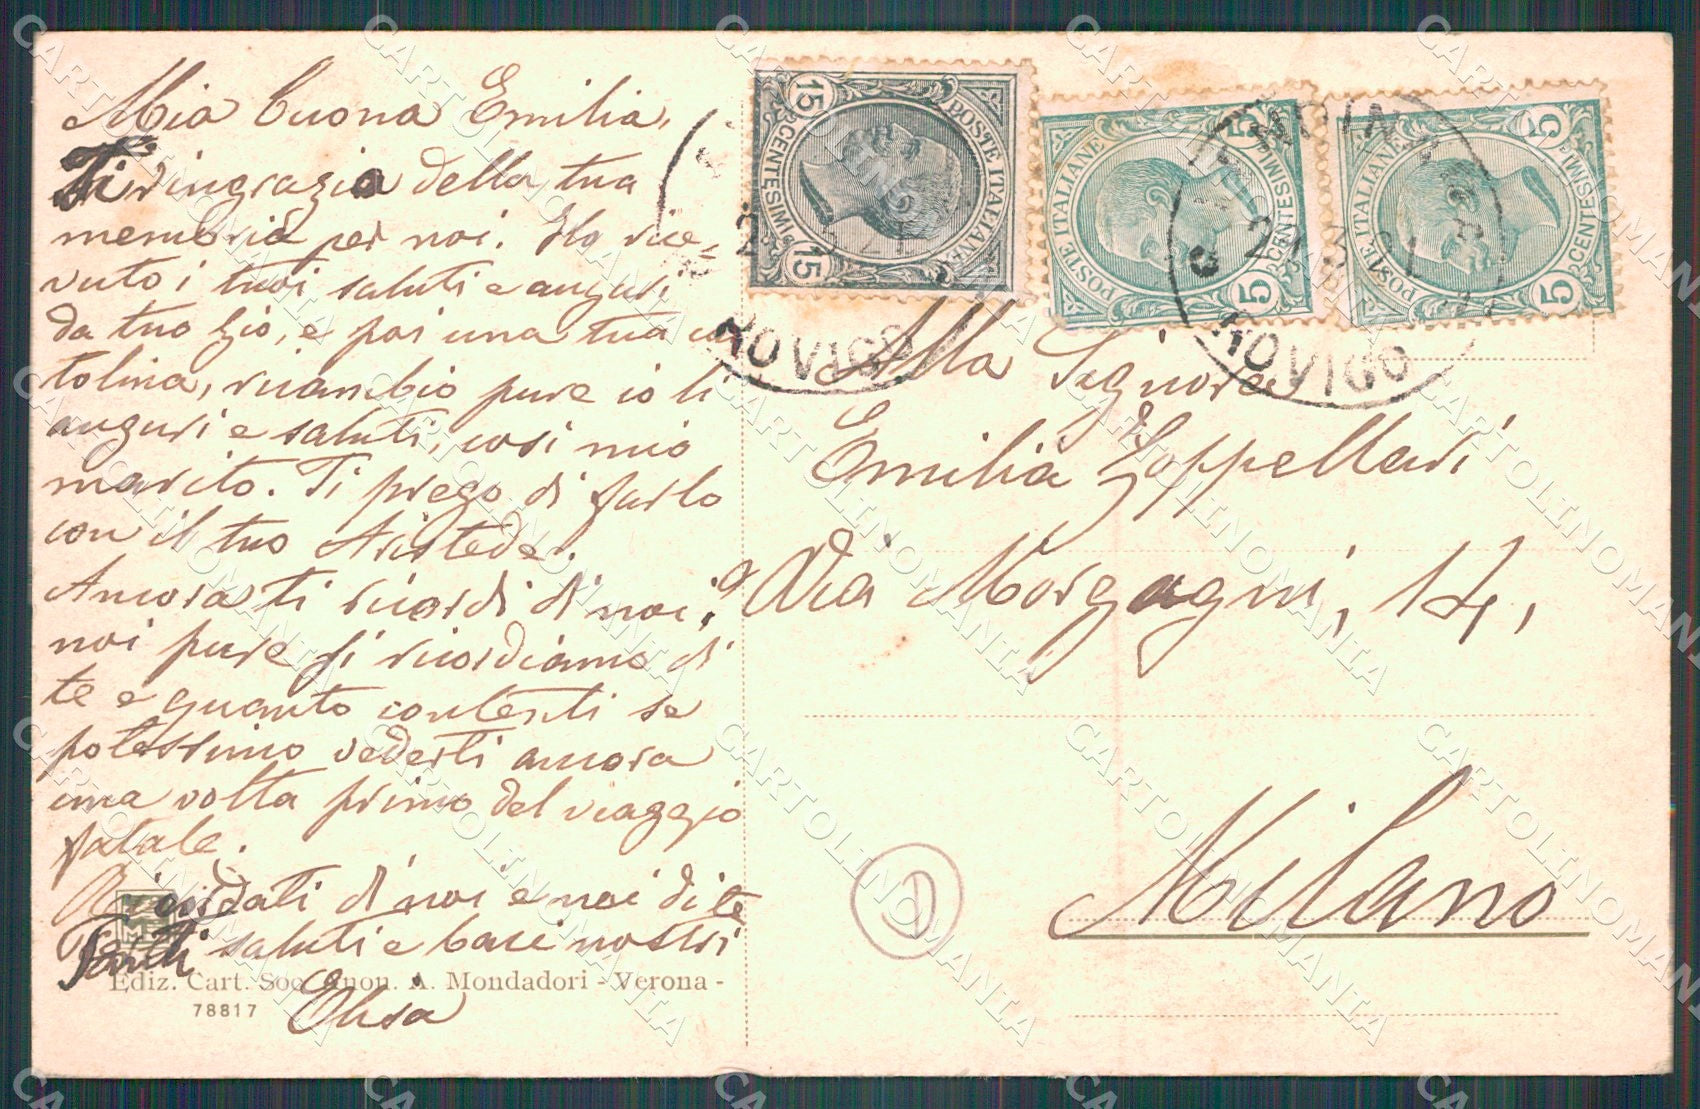 Mia buona Emilia,
Ti ringrazio della tua
memoria per noi. Ho rice=
vuto i tuoi saluti e auguri
da tuo Zio, e poi una tua car
tolina, ricambio pure io li
auguri e saluti, così mio
marito. Ti prego di farlo
con il tuo Aristede.
Ancora ti ricordi di noi, e
noi pure si ricordiamo di
te e quanto contenti se
potessimo vederti ancora
una volta primo del viaggio
fatale.
Ricordati di noi e noi di te
Tanti saluti e baci nostri
Elisa
Ediz. Cart. Soc. Anon. A. Mondadori - Verona -
78817
POSTE ITALIANE
15 CENTESIMI 15
POSTE ITALIANE
5 CENTESIMI 5
POSTE ITALIANE
5 CENTESIMI 5
ROVIGO
ROVIGO
Alla Signora
Emilia Zoppellari
Via Morgagni, 14,
Milano
CARTOLINOMANIA